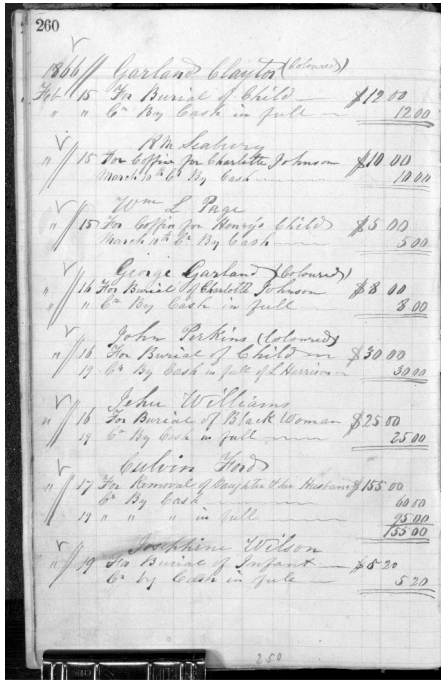 260
1866 Garland Clayton (Coloured)
Feb 15 For Burial of Child $12 00
" " Cr By Cash in full 12 00
R M Seabury
" 15 For Coffin for Charlotte Johnson $10 00
March 10th Cr By Cash 10 00
Wm L Page
" 15 For Coffin for Henry's Child $5 00
March 10th Cr By Cash 5 00
George Garland (Coloured)
" 16 For Burial of Charlotte Johnson $8 00
" Cr By Cash in full 8 00
John Perkins (Coloured)
" 16 For Burial of Child $30 00
19 Cr By Cash in full of L Harrison 30 00
Jehu Williams
" 16 For Burial of Black Woman $25 00
19 Cr By Cash in full 25 00
Culvin Ford
" 17 For Removal of Daughter & her Husband $155 00
Cr By Cash 60 00
19 " " " in full 95 00
155 00
Josephine Wilson
" 19 For Burial of Infant $5 20
Cr by Cash in full 5 20
250